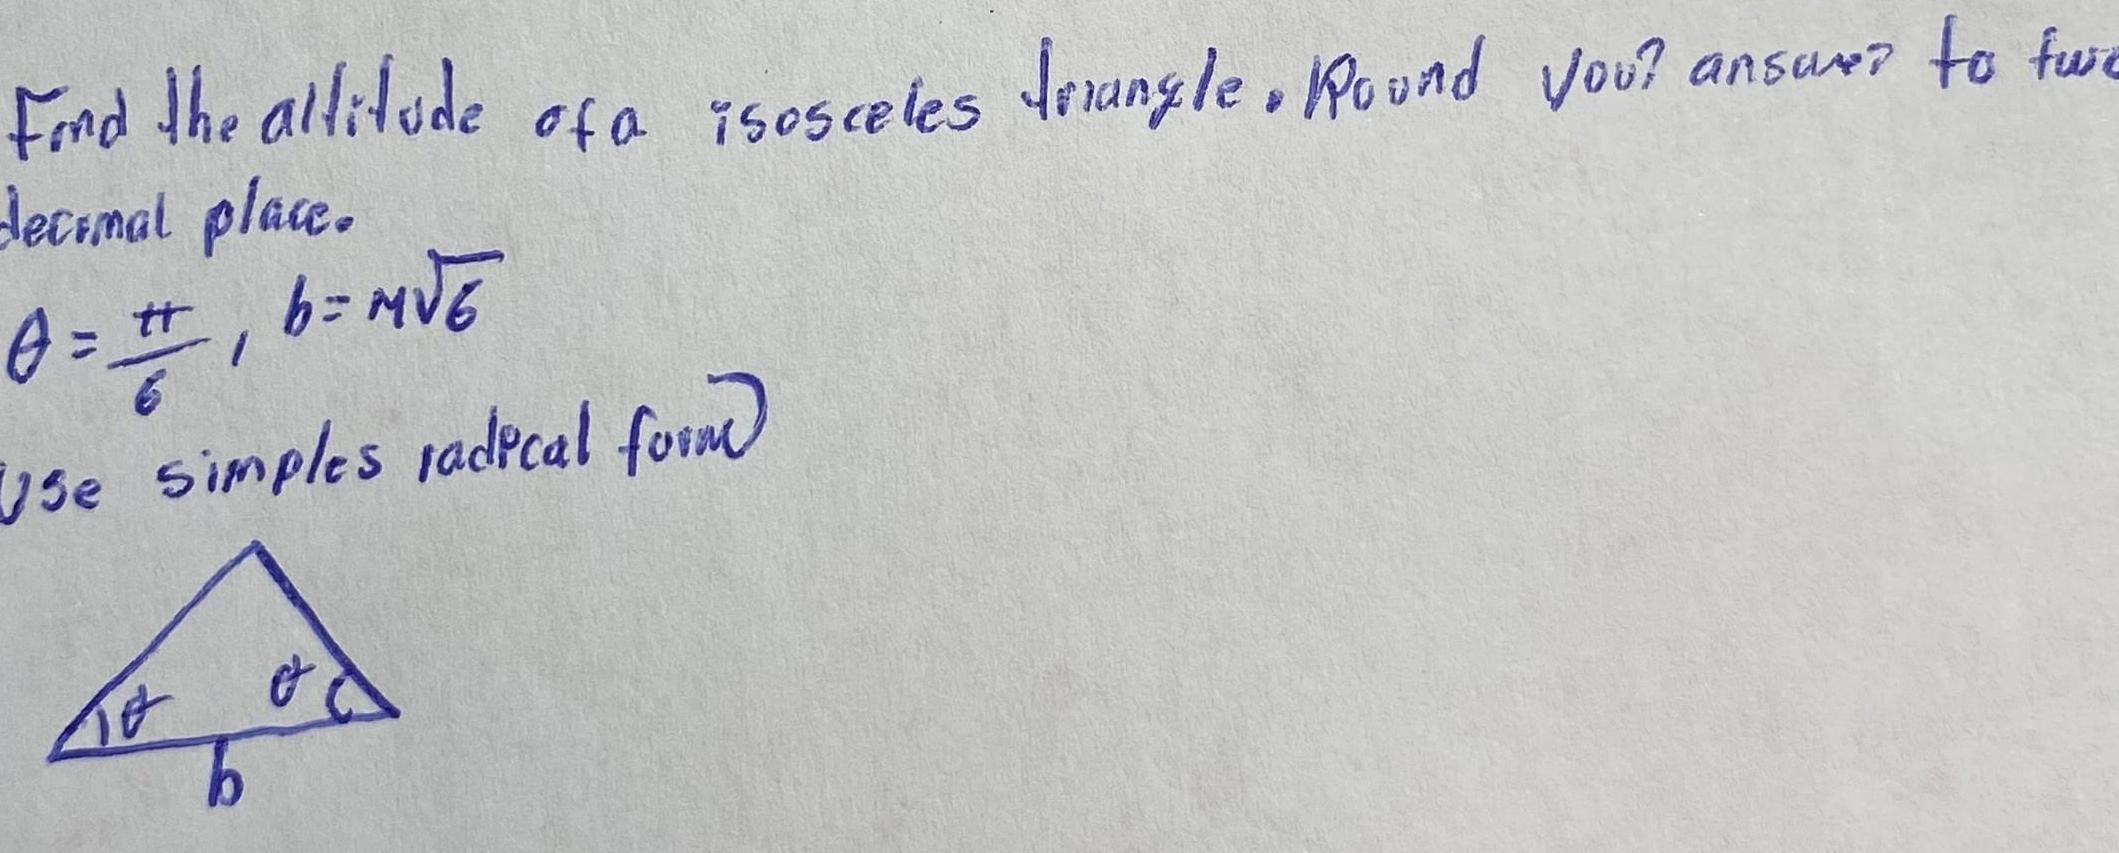 Find the altitude of a isosceles triangle. Round your answer to two
decimal place.
θ = π/6, b = M√6
use simples radical form
θ θ
b